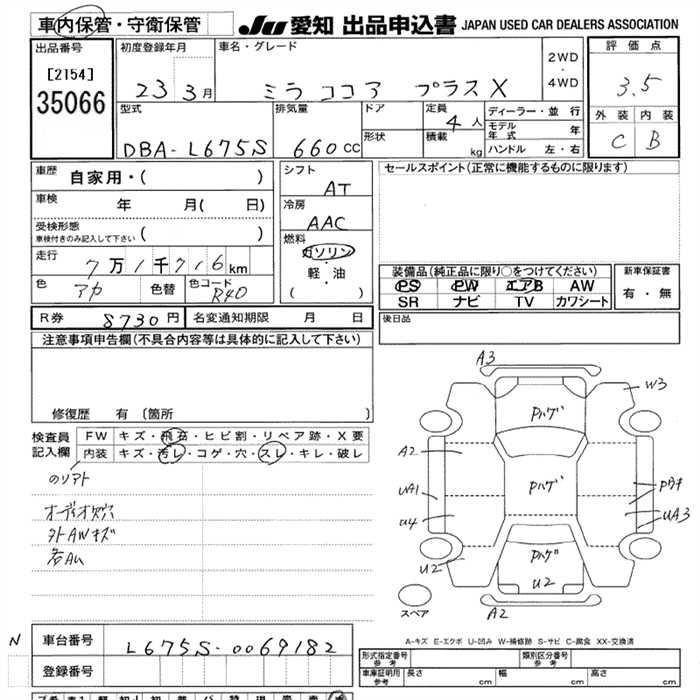 車内保管・守衛保管
JU 愛知 出品申込書 JAPAN USED CAR DEALERS ASSOCIATION
出品番号
[2154]
35066
初度登録年月
23 3月
車名・グレード
ミラ ココア プラスX
2WD
・
4WD
評価点
3.5
外装 内装
C B
型式
DBA-L675S
排気量
660cc
ドア
形状
定員
4人
積載
kg
ディーラー・並行
モデル年式 年
ハンドル 左・右
車歴
自家用・( )
車検
年 月( 日)
受検形態
車検付きのみ記入して下さい ( )
走行
7万1千716km
色
アカ
色替
色コード
R40
シフト
AT
冷房
AAC
燃料
ガソリン
・
軽・油
( )
セールスポイント(正常に機能するものに限ります)
装備品(純正品に限り○をつけてください)
PS PW エアB AW
SR ナビ TV カワシート
新車保証書
有・無
後日品
R券 8730円
名変通知期限 月 日
注意事項申告欄(不具合内容等は具体的に記入して下さい)
修復歴 有〔箇所 〕
検査員記入欄
FW キズ・飛石・ヒビ割・リペア跡・X要
内装 キズ・汚レ・コゲ・穴・スレ・キレ・破レ
オーディオ
外AWキズ
A3
W3
Pハゲ
A2
Pハゲ
UA1
Pワキ
U4
UA3
U2
Pハゲ
U2
スペア
A2
A-キズ E-エクボ U-凹み W-補修跡 S-サビ C-腐食 XX-交換済
N
車台番号
L675S-0069182
登録番号
形式指定番号
参考
類別区分番号
参考
車庫証明用
参考
長さ cm
幅 cm
高さ cm